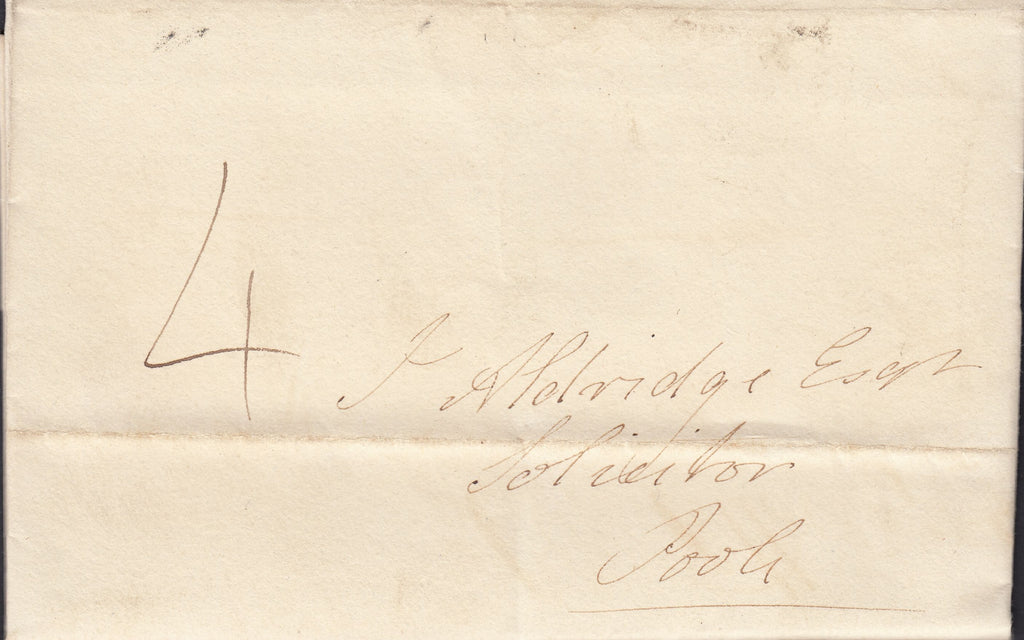 4
J Aldridge Esqr
Solicitor
Poole